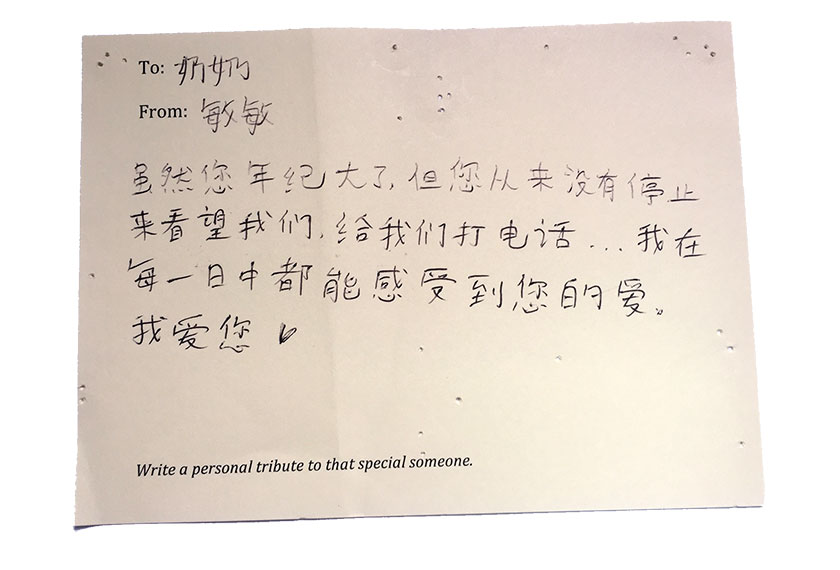 To: 奶奶
From: 敏敏
虽然您年纪大了，但您从来没有停止
来看望我们，给我们打电话...我在
每一日中都能感受到您的爱。
我爱您
Write a personal tribute to that special someone.